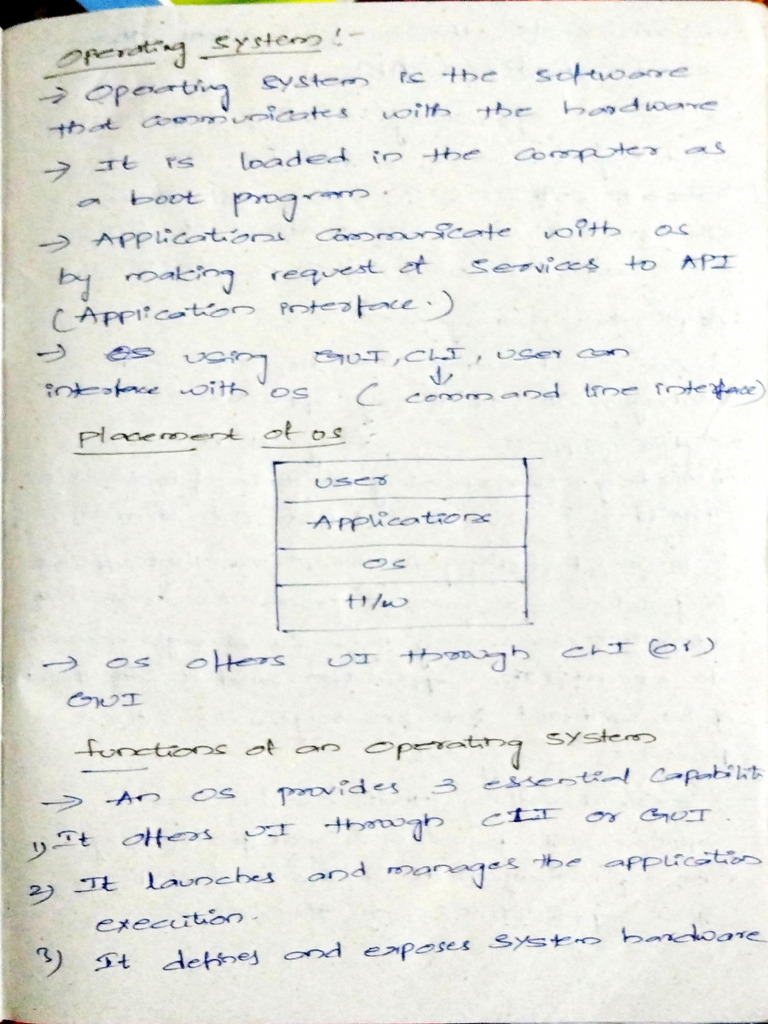 Operating System :-
→ Operating system is the software
that communicates with the hardware
→ It is loaded in the computer as
a boot program.
→ Applications communicate with os
by making request of services to API
(Application interface.)
→ using GUI, CLI, user can
interface with os ( command line interface)
Placement of os :
user
Applications
os
H/w
→ os offers UI through CLI (or)
GUI
functions of an operating system
→ An os provides 3 essential Capabiliti
1) It offers UI through CLI or GUI.
2) It launches and manages the application
execution.
3) It defines and exposes system hardware